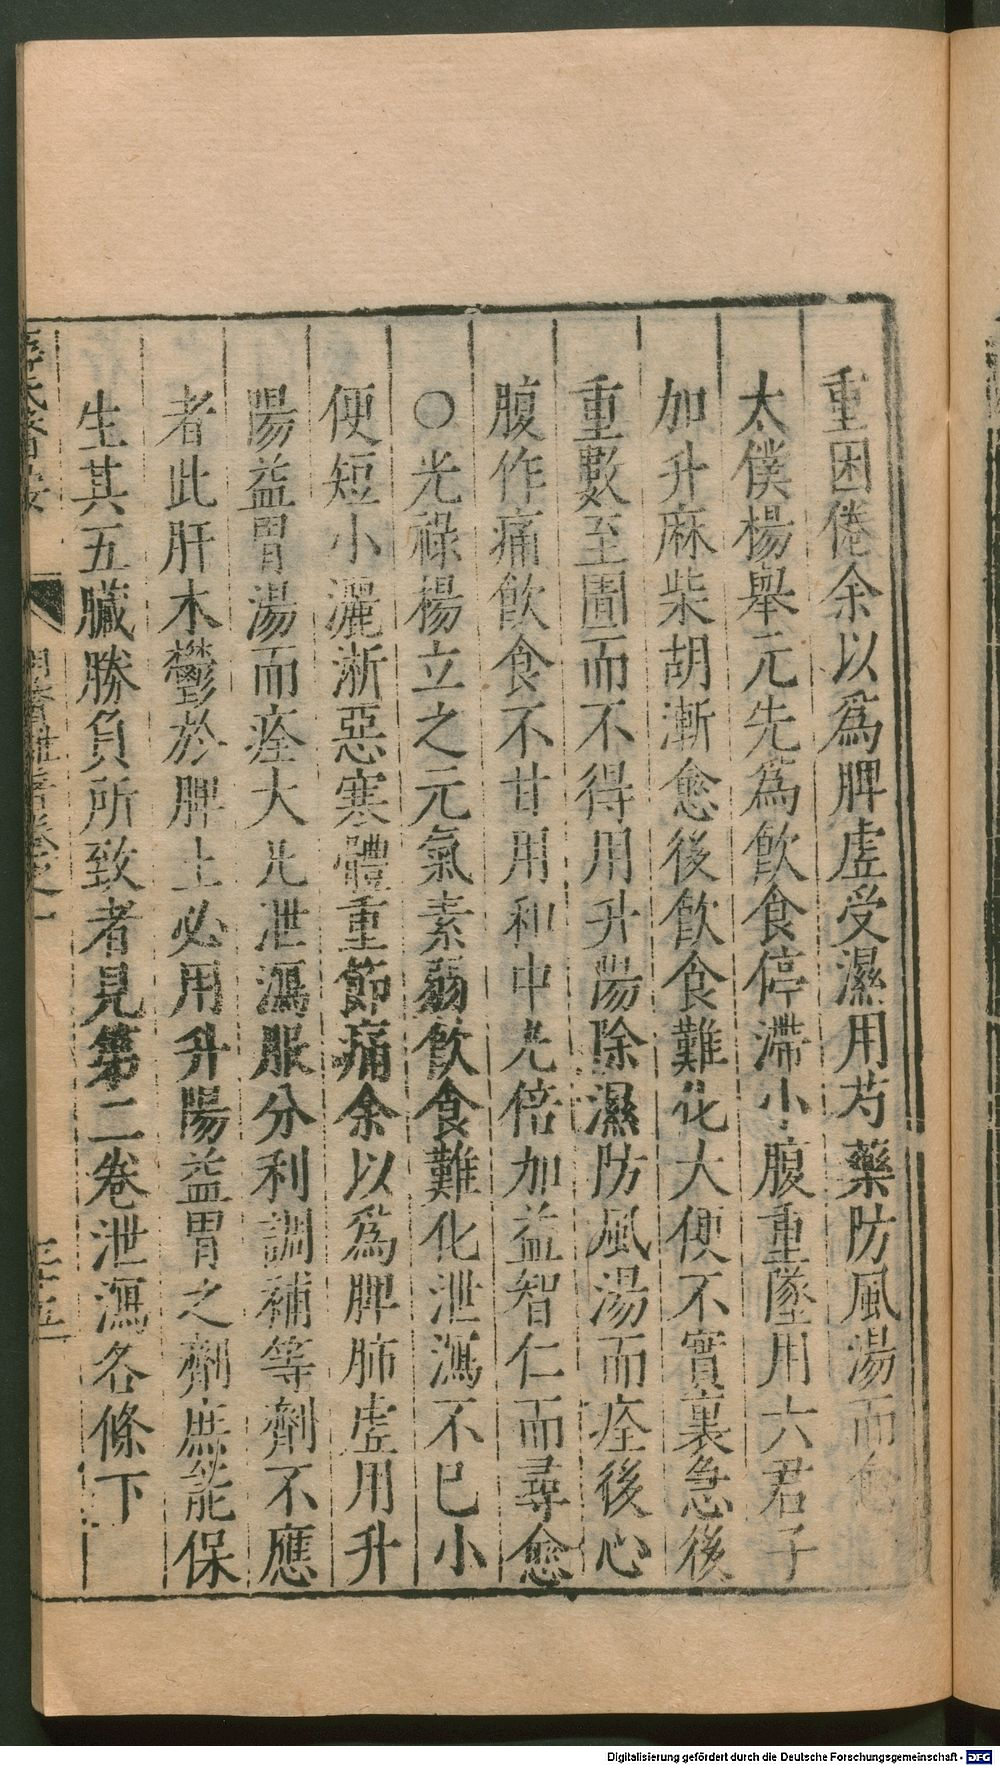 重困倦余以爲脾虗受濕用芍藥防風湯而愈
太僕楊舉元先爲飲食停滯小腹重墜用六君子
加升麻柴胡漸愈後飲食難化大便不實裏急後
重數至圊而不得用升陽除濕防風湯而痊後心
腹作痛飲食不甘用和中丸倍加益智仁而尋愈
○光祿楊立之元氣素弱飲食難化泄瀉不已小
便短小灑淅惡寒體重節痛余以爲脾肺虗用升
陽益胃湯而痊大凡泄瀉服分利調補等劑不應
者此肝木鬱於脾土必用升陽益胃之劑庶能保
生其五臟勝負所致者見第二卷泄瀉各條下
薛氏醫按
明醫雜著卷之一
三十五
Digitalisierung gefördert durch die Deutsche Forschungsgemeinschaft - DFG